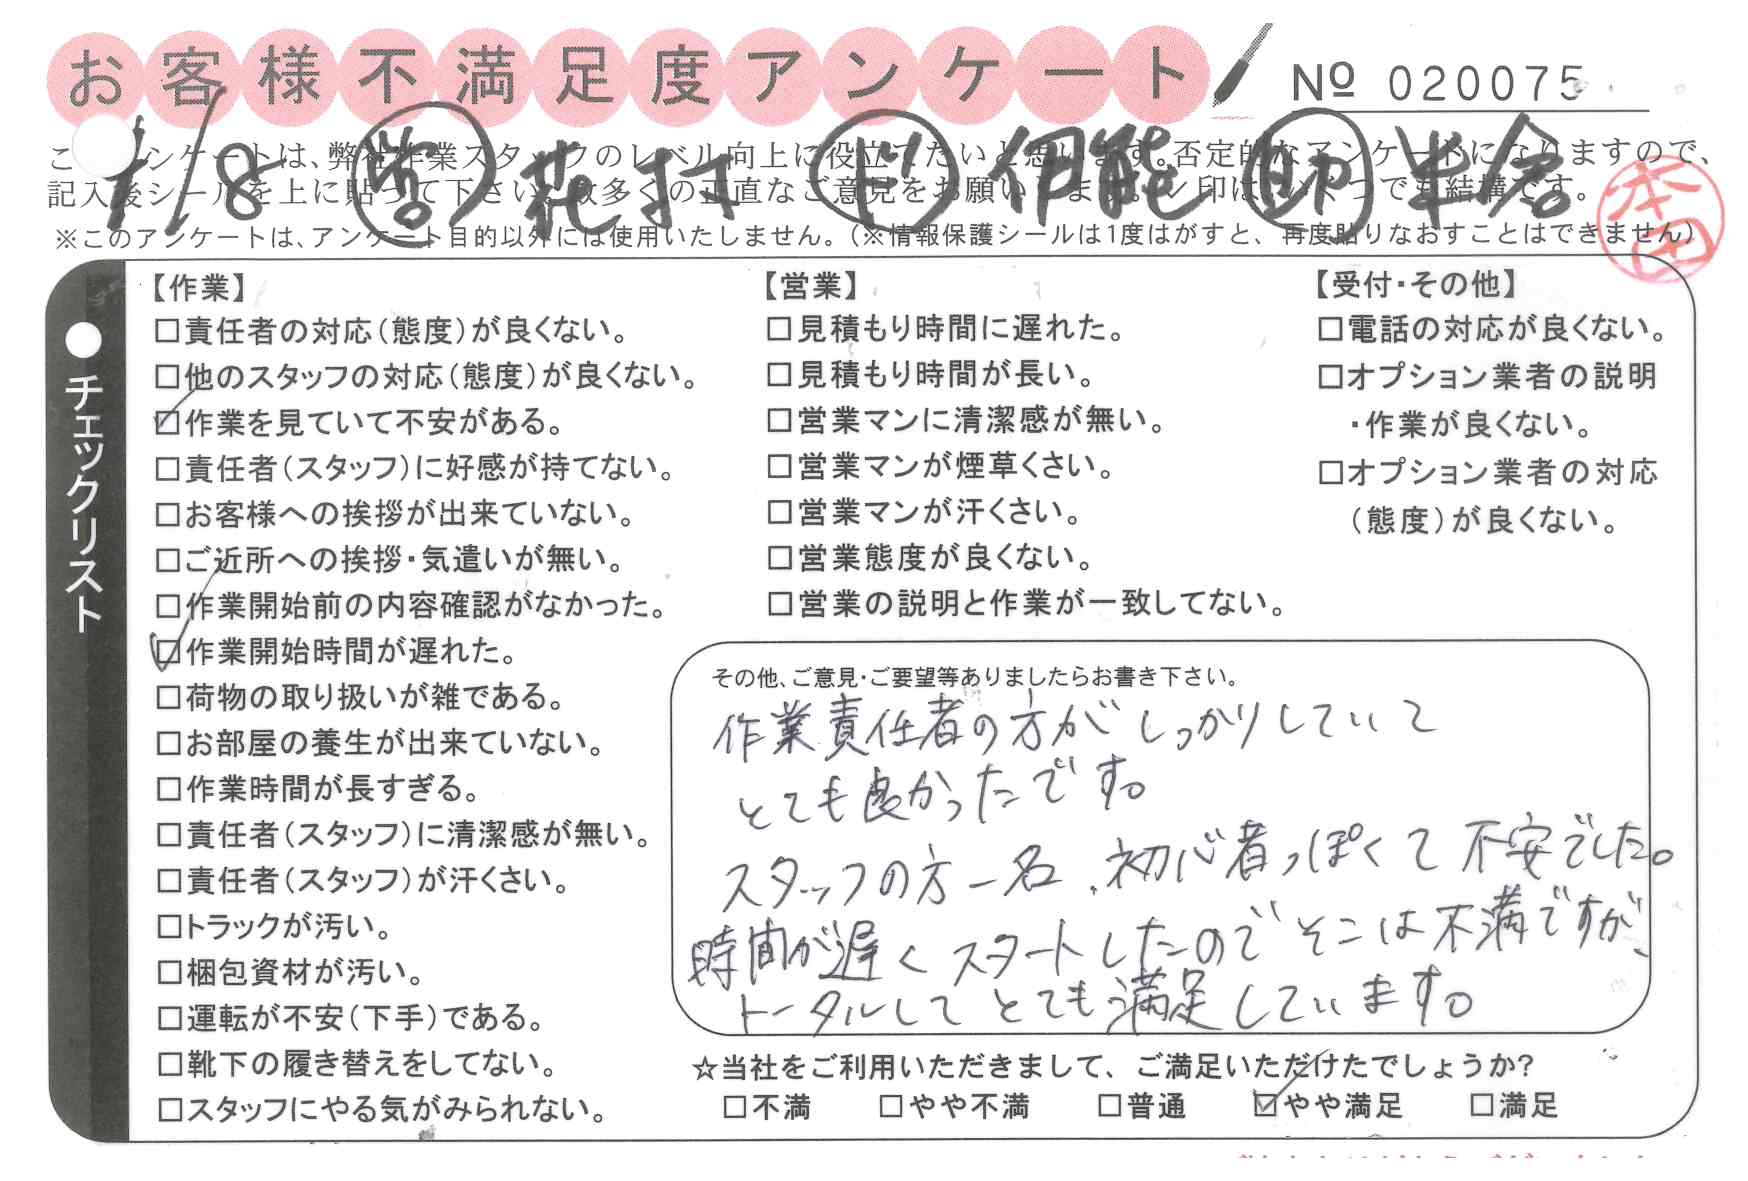 お客様不満足度アンケート
Nº 020075
1/8 営 花村 ド 伊能 助 半倉
このアンケートは、弊社作業スタッフのレベル向上に役立てたいと思います。否定的なアンケートになりますので、
記入後シールを上に貼って下さい。数多くの正直なご意見をお願いします。レ印はいくつでも結構です。
※このアンケートは、アンケート目的以外には使用いたしません。(※情報保護シールは1度はがすと、再度貼りなおすことはできません)
本田
チェックリスト
【作業】
□責任者の対応(態度)が良くない。
□他のスタッフの対応(態度)が良くない。
☑作業を見ていて不安がある。
□責任者(スタッフ)に好感が持てない。
□お客様への挨拶が出来ていない。
□ご近所への挨拶・気遣いが無い。
□作業開始前の内容確認がなかった。
☑作業開始時間が遅れた。
□荷物の取り扱いが雑である。
□お部屋の養生が出来ていない。
□作業時間が長すぎる。
□責任者(スタッフ)に清潔感が無い。
□責任者(スタッフ)が汗くさい。
□トラックが汚い。
□梱包資材が汚い。
□運転が不安(下手)である。
□靴下の履き替えをしてない。
□スタッフにやる気がみられない。
【営業】
□見積もり時間に遅れた。
□見積もり時間が長い。
□営業マンに清潔感が無い。
□営業マンが煙草くさい。
□営業マンが汗くさい。
□営業態度が良くない。
□営業の説明と作業が一致してない。
【受付・その他】
□電話の対応が良くない。
□オプション業者の説明
・作業が良くない。
□オプション業者の対応
(態度)が良くない。
その他、ご意見・ご要望等ありましたらお書き下さい。
作業責任者の方がしっかりしていて
とても良かったです。
スタッフの方一名、初心者っぽくて不安でした。
時間が遅くスタートしたのでそこは不満ですが、
トータルしてとても満足しています。
☆当社をご利用いただきまして、ご満足いただけたでしょうか?
□不満 □やや不満 □普通 ☑やや満足 □満足